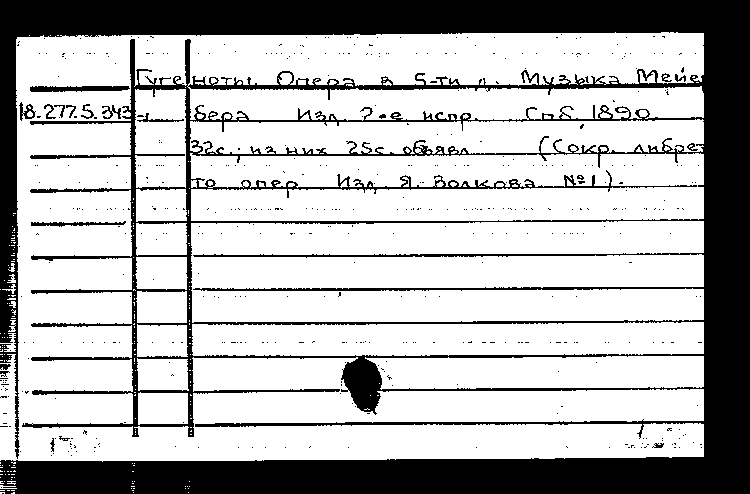 Гугеноты. Опера в 5-ти д. Музыка Мейер
18.277.5.343 бера Изд. 2-е испр. Спб, 1890.
32с.; из них 25с. объявл (Сокр. либрет
то опер. Изд. Я. Волкова №1).